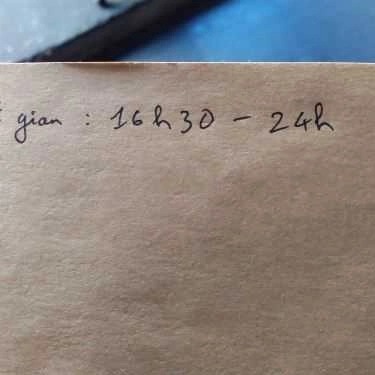 gian : 16h30 - 24h